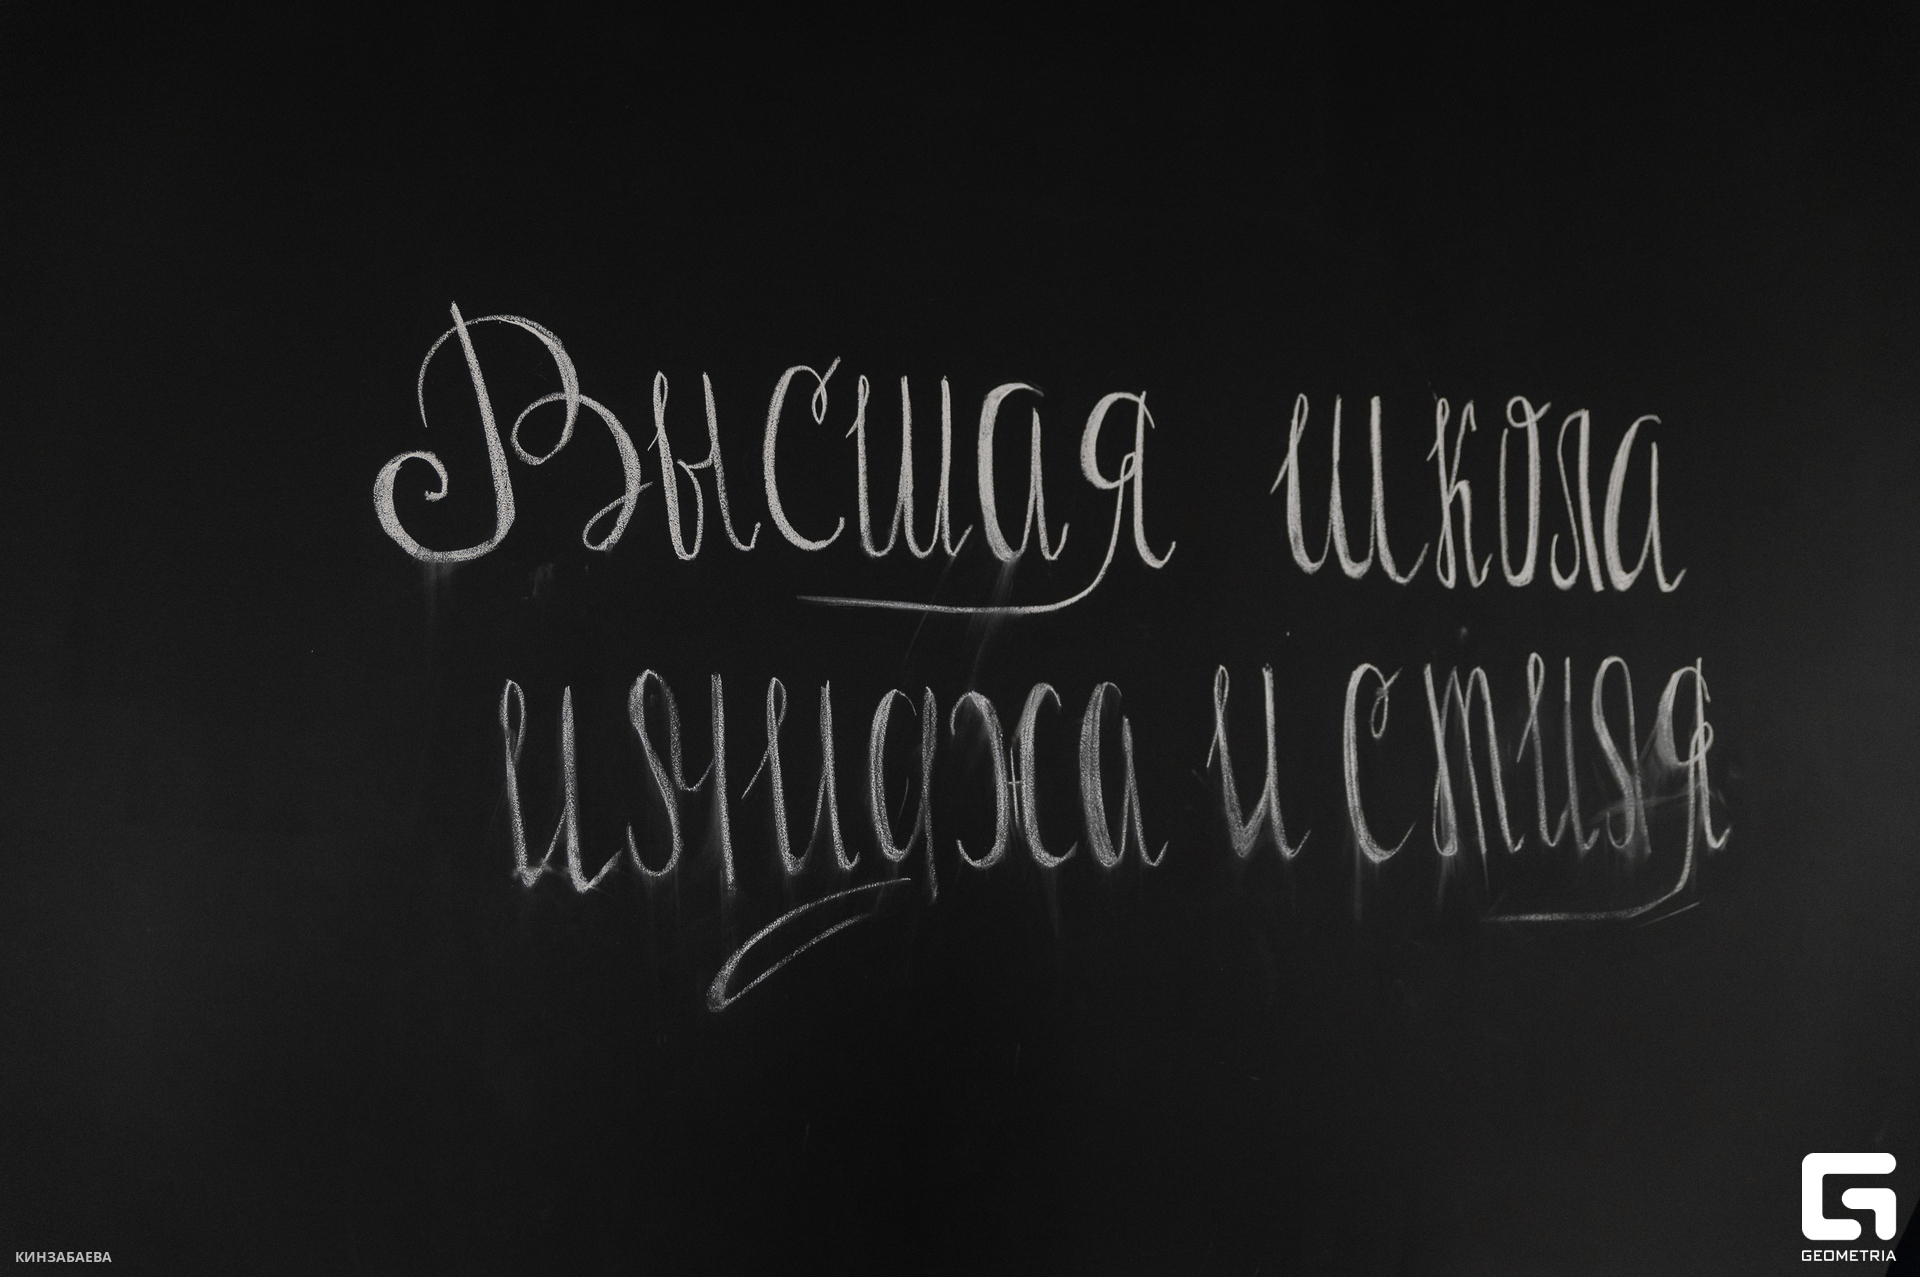 Высшая школа
имиджа и стиля
КИНЗАБАЕВА
GEOMETRIA